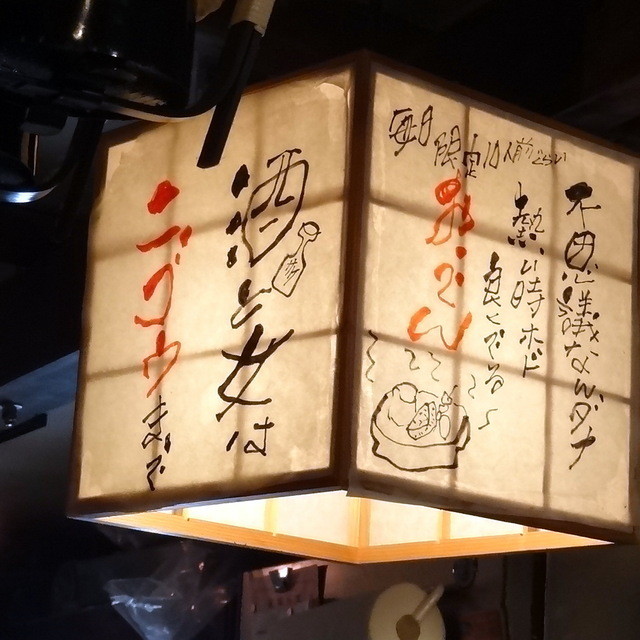 不思議なんダナ
熱い時ホド
良くでる〜
おでん
毎日限定10人前ぐらい
酒と女は
ニゴウまで